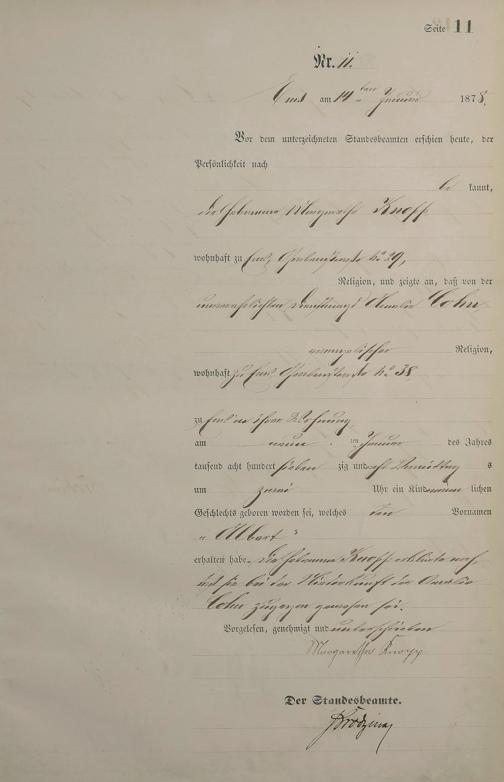 Seite 11
Nr. 11.
Ems am 14ten Januar 1878.
Vor dem unterzeichneten Standesbeamten erschien heute, der
Persönlichkeit nach
be kannt,
die Hebamme Margarethe Knopp
wohnhaft zu Ems, No 29,
Religion, und zeigte an, daß von der
unverehelichten Dienstmagd Amalie Cohn
evangelischer Religion,
wohnhaft zu Ems No 38
zu Ems in ihrer Wohnung
am neun ten Januar des Jahres
tausend acht hundert sieben zig und acht Vormittag s
um Uhr ein Kind männ lichen
Geschlechts geboren worden sei, welches den Vornamen
„Albert“
erhalten habe. Die Hebamme Knopp erklärte noch,
daß sie bei der Niederkunft der Amalie
Cohn zugegen gewesen sei.
Vorgelesen, genehmigt und unterschrieben
Margarethe Knopp
Der Standesbeamte.